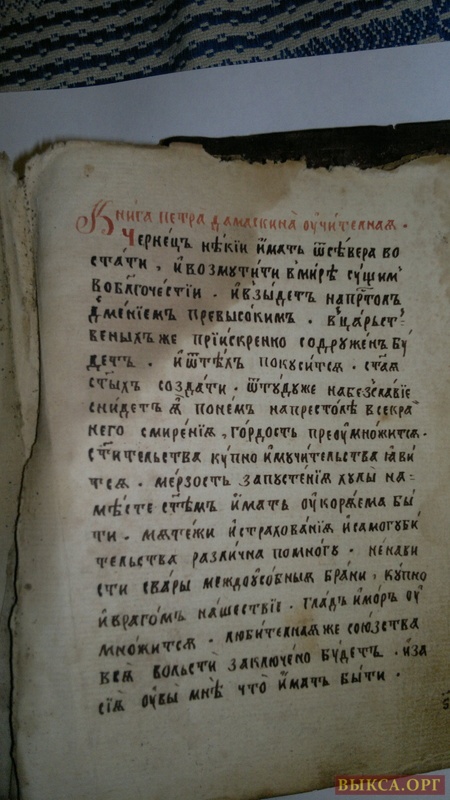 Книга петра дамаскина оучителная .
Чернецъ нѣкїи и҆мать ѿсѣвера во
стати , и҆возмутити вмирѣ сущим̾
вобл҃гочестїи . и҆взыдетъ напрⷭ҇толъ
дмѣнїемъ превысокимъ . вцр҃ьст
веныхъже прїискренно содруженъ бу
детъ . и҆ѿтѣхъ покусится . ст҃ая
ст҃ыхъ создати . ѿтудуже набезславїе
снидетъ а҆ понемъ напрестолѣ всекра
него смиренїя , гордость преоумножится .
ст҃ителства купно и҆мучителства ꙗ҆ви
тся . мерзость запустенїя хулы на
мѣсте ст҃ѣмъ и҆мать оукоряема бы
ти . мятежи и҆страхованїя и҆самогуби
телства различна помногу . ненави
сти свары междоусобныя брани , купно
и҆врагомъ нашествїе . гладъ и҆моръ оу
множится . любителная же союзства
вся вольсти заключено будетъ . и҆за
сїя оувы мнѣ что и҆мать быти .
ВЫКСА.ОРГ